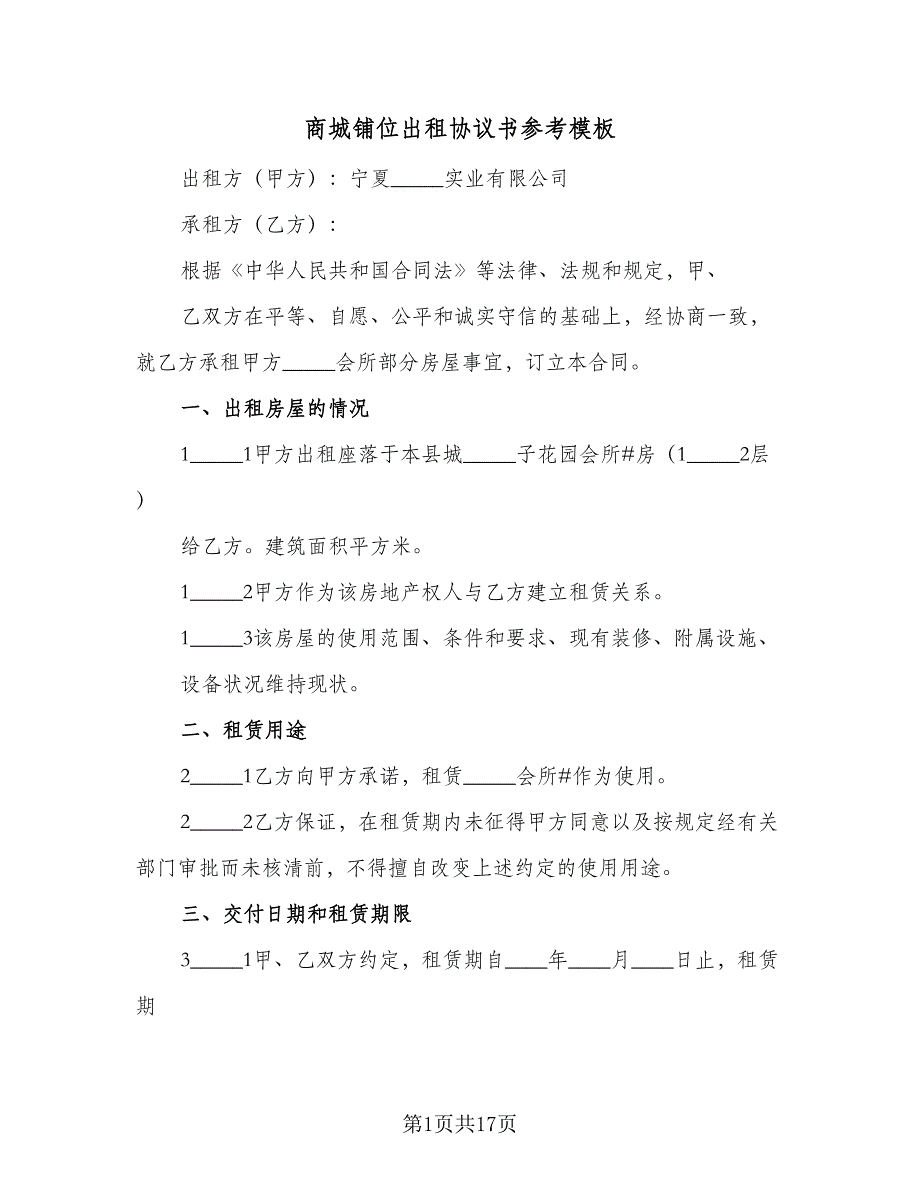 商城铺位出租协议书参考模板
出租方（甲方）：宁夏_____实业有限公司
承租方（乙方）：
根据《中华人民共和国合同法》等法律、法规和规定，甲、
乙双方在平等、自愿、公平和诚实守信的基础上，经协商一致，
就乙方承租甲方_____会所部分房屋事宜，订立本合同。
一、出租房屋的情况
1_____1甲方出租座落于本县城_____子花园会所#房（1_____2层
）
给乙方。建筑面积平方米。
1_____2甲方作为该房地产权人与乙方建立租赁关系。
1_____3该房屋的使用范围、条件和要求、现有装修、附属设施、
设备状况维持现状。
二、租赁用途
2_____1乙方向甲方承诺，租赁_____会所#作为使用。
2_____2乙方保证，在租赁期内未征得甲方同意以及按规定经有关
部门审批而未核清前，不得擅自改变上述约定的使用用途。
三、交付日期和租赁期限
3_____1甲、乙双方约定，租赁期自____年____月____日止，租赁
期
第1页共17页